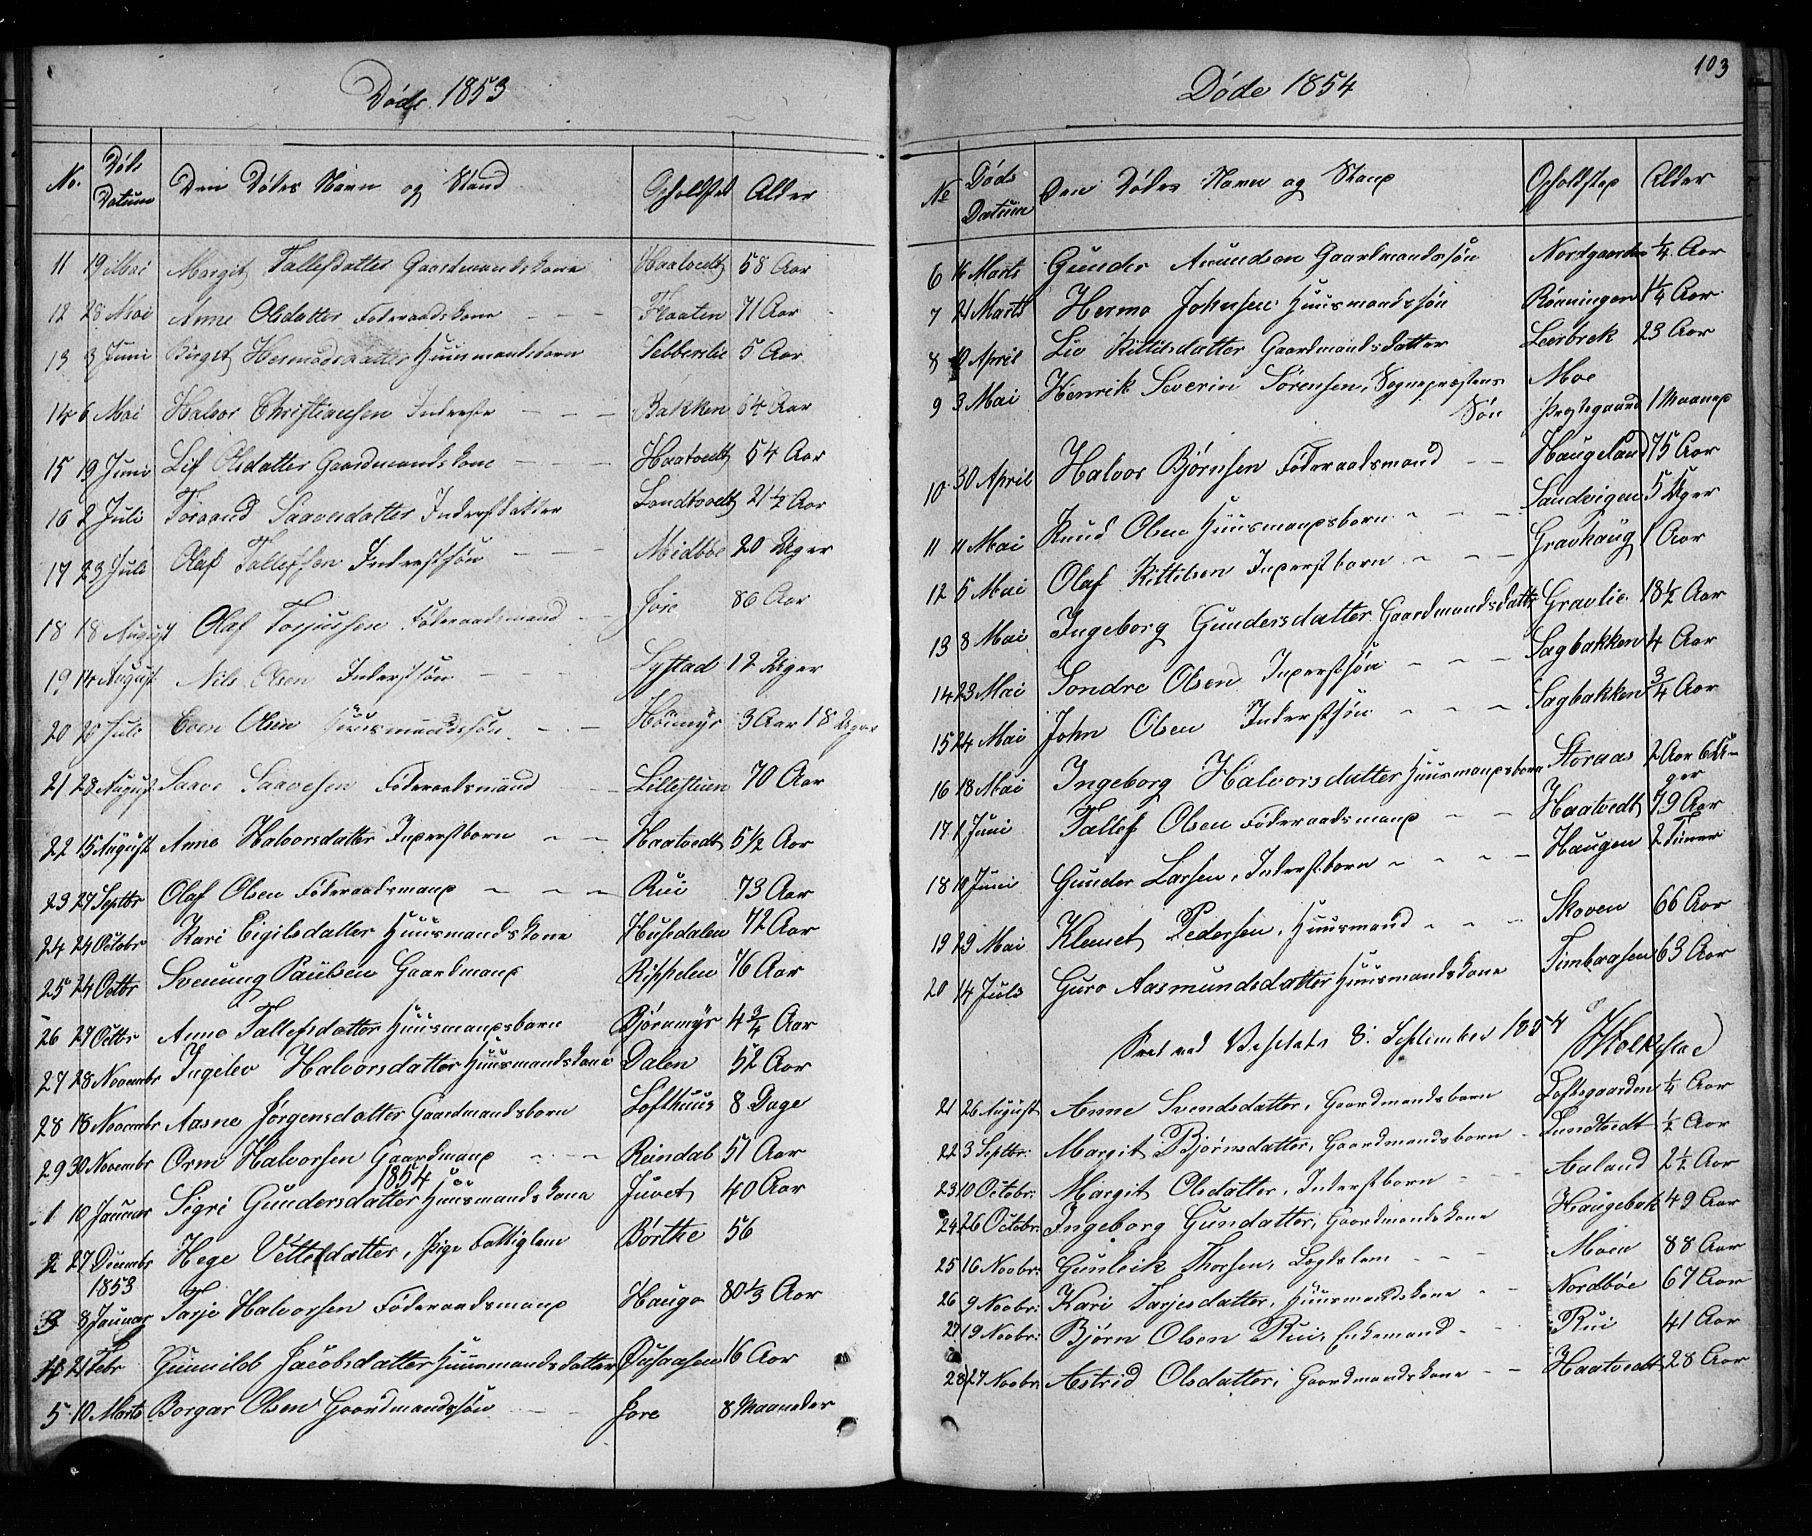 Døde 1853
No. Døds Datum Den Dødes Navn og Stand Opholdsted Alder
11 19 Mai Margit Tallefsdatter Gaardmandskone Haatvedt 58 Aar
12 28 Mai Anne Olsdatter Føderaadskone Flaaten 71 Aar
13 3 Juni Birgit Hermodsdatter Huusmandsbarn Sebberslie 5 Aar
14 6 Mai Halvor Christiansen Inderste Bakken 64 Aar
15 19 Juni Lif Olsdatter Gaardmandskone Haatvedt 54 Aar
16 2 Juli Toraand Saavesdatter Inderstdatter Landtvedt 21 1/2 Aar
17 23 Juli Olaf Tallefsen Inderstsøn Midtbøe 20 Uger
18 18 August Olaf Torjussen Føderaadsmand Jore 86 Aar
19 14 August Nils Olsen Inderstsøn Systad 12 Uger
20 20 Juli Even Olsen Huusmandssøn Høimyr 3 Aar 18 Uger
21 28 August Saave Saavesen Føderaadsmand Lillestuen 70 Aar
22 15 August Anne Halvorsdatter Inderstbarn Haatvedt 5 1/2 Aar
23 27 Septbr Olaf Olsen Føderaadsmand Rui 73 Aar
24 24 Octobr Kari Eigilsdatter Huusmandskone Husedalen 72 Aar
25 24 Octbr Svenung Paulsen Gaardmand Rishelen 76 Aar
26 27 Octbr Anne Tallefsdatter Huusmandsbarn Bjørnmyr 4 3/4 Aar
27 28 Novembr Ingelev Halvorsdatter Huusmandskone Dalen 52 Aar
28 18 Novembr Aasne Jørgensdatter Gaardmandsbarn Lofthuus 8 Dage
29 30 Novembr Orm Halvorsen Gaardmand Reindal 51 Aar
1854
1 10 Januar Sigri Gundersdatter Huusmandskone Juvet 40 Aar
2 27 Decembr Hege Vetlesdatter, Pige Fattiglem Børthe 56
1853
3 8 Januar Tarje Halvorsen Føderaadsmand Hauga 80 1/3 Aar
4 21 Febr Gunnild Jacobsdatter Huusmandsdatter Øysaasen 16 Aar
5 10 Marts Borgar Olsen Gaardmandssøn Jore 8 Maaneder
103
Døde 1854
No Døds Datum Den Dødes Navn og Stand Opholdsted Alder
6 16 Marts Gunder Amundsen Gaardmandssøn Nordgaarden 1/4 Aar
7 21 Marts Hermo Johnsen Huusmandssøn Rønningen 1 1/4 Aar
8 10 April Liv Kittilsdatter Gaardmandsdatter Leerbrek 23 Aar
9 3 Mai Henrik Severin Sørensen, Sognepræstens Moe
Søn Præstegaard 1 Maaned
10 30 April Halvor Bjørnsen Føderaadsmand Haugeland 75 Aar
11 11 Mai Knud Olsen Huusmandsbarn Sandvigen 5 Uger
12 5 Mai Olaf Kittilsen Inderstbarn Gravhaug 1 Aar
13 8 Mai Ingeborg Gundersdatter Gaardmandsdatter Gravlie 18 1/2 Aar
14 23 Mai Sondre Olsen Inderstsøn Sagbakken 4 Aar
15 24 Mai John Olsen Inderstsøn Sagbakken 3/4 Aar
16 18 Mai Ingeborg Halvorsdatter Huusmandsbarn Storaas 2 Aar 6 Uger
17 1 Juni Tallef Olsen Føderaadsmand Haatvedt 79 Aar
18 10 Juni Gunder Larsen, Inderstbarn Haugen 2 Timer
19 29 Mai Klemet Pedersen, Huusmand Skoven 66 Aar
20 14 Juli Guro Aasmundsdatter Huusmandskone Timbraasen 63 Aar
Seet ved Visitats 8. September 1854
21 26 August Anne Svendsdatter, Gaardmandsbarn Loftsgaarden 1/4 Aar
22 3 Septbr: Margit Bjørnsdatter, Gaardmandsbarn Lundtvedt 1/2 Aar
23 10 Octobr: Margit Olsdatter, Inderstbarn Aaland 2 1/2 Aar
24 26 Octobr: Ingeborg Gundatter, Gaardmandskone Haugebak 49 Aar
25 16 Novbr: Gunleik Thorsen, Lægdslem Moen 88 Aar
26 9 Novbr: Kari Tarjesdatter, Huusmandskone Nordbøe 67 Aar
27 19 Novbr: Bjørn Olsen Rui, Enkemand Rui 41 Aar
28 27 Novbr: Astrid Olsdatter, Gaardmandskone Haatvedt 28 Aar